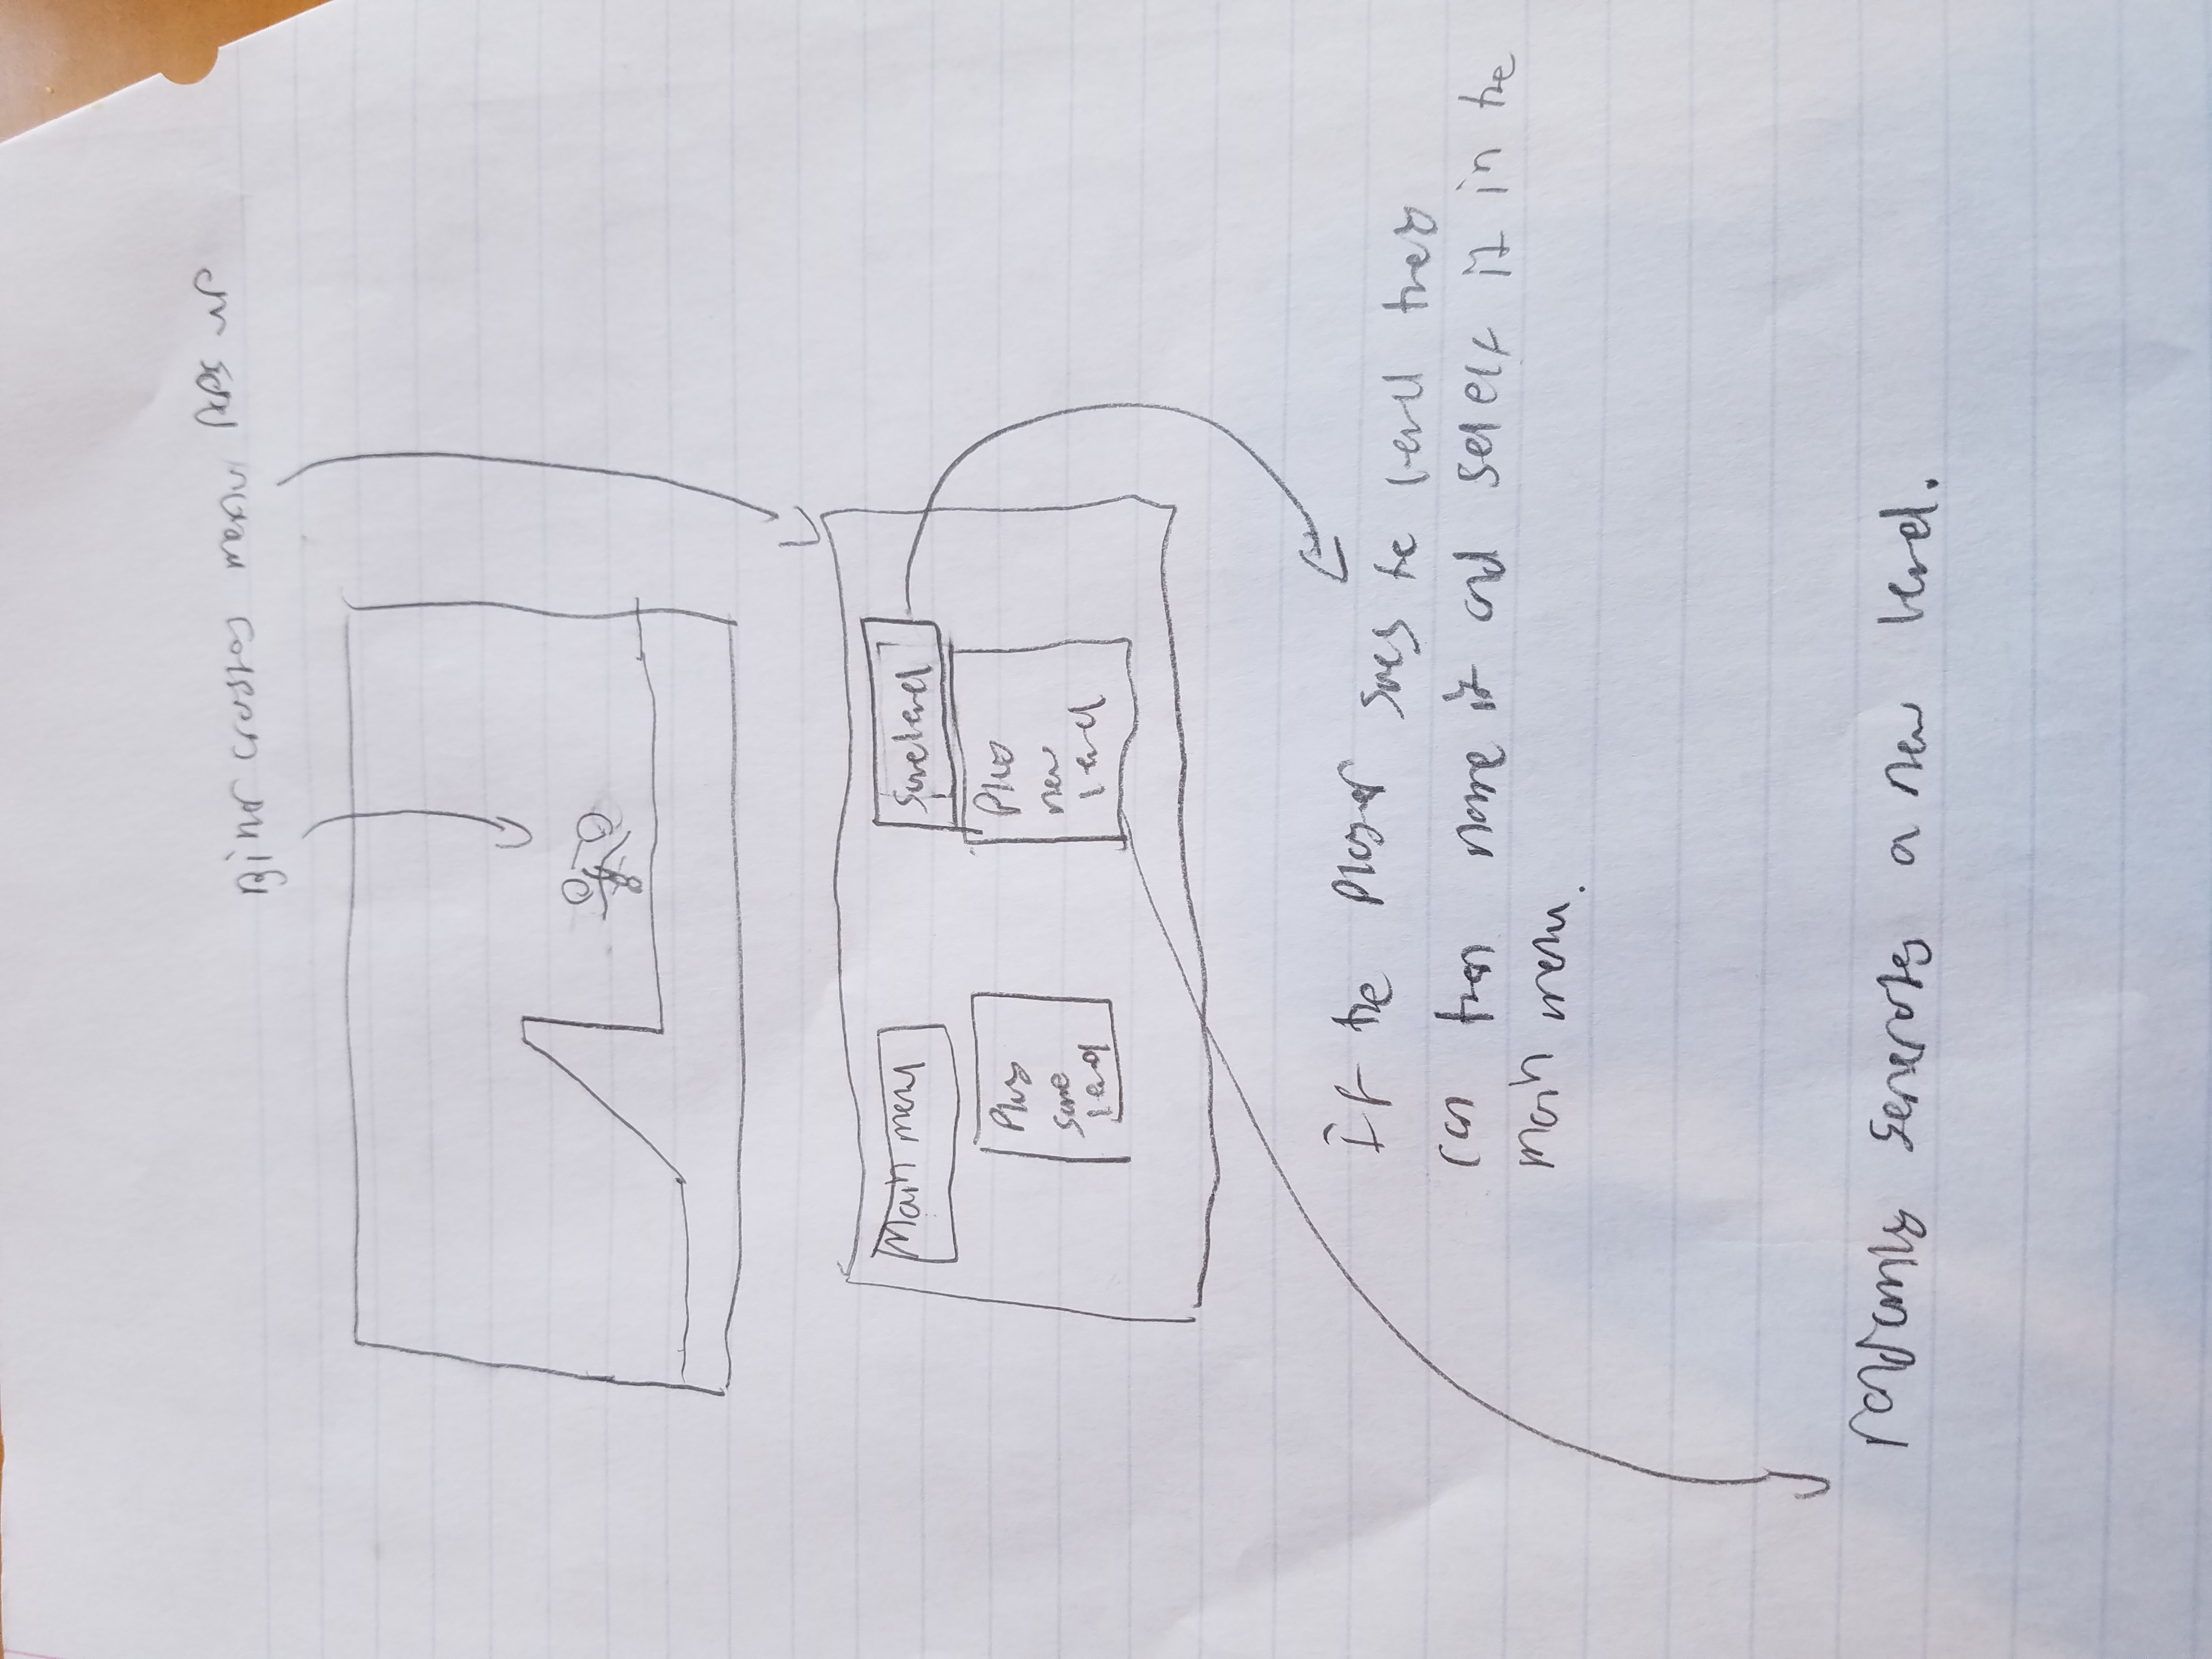 Biker crashes menu pops up
Main menu
Save level
Play
same
level
Play
new
level
If the player saves the level they
can then name it and select it in the
main menu.
randomly generates a new level.